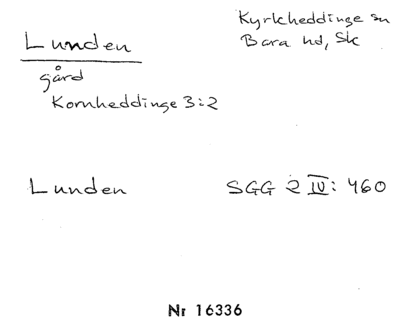 Lunden
Kyrkheddinge sn
Bara hd, Sk
gård
Kornheddinge 3:2
Lunden SGG 2 IV: 460
Nr 16336